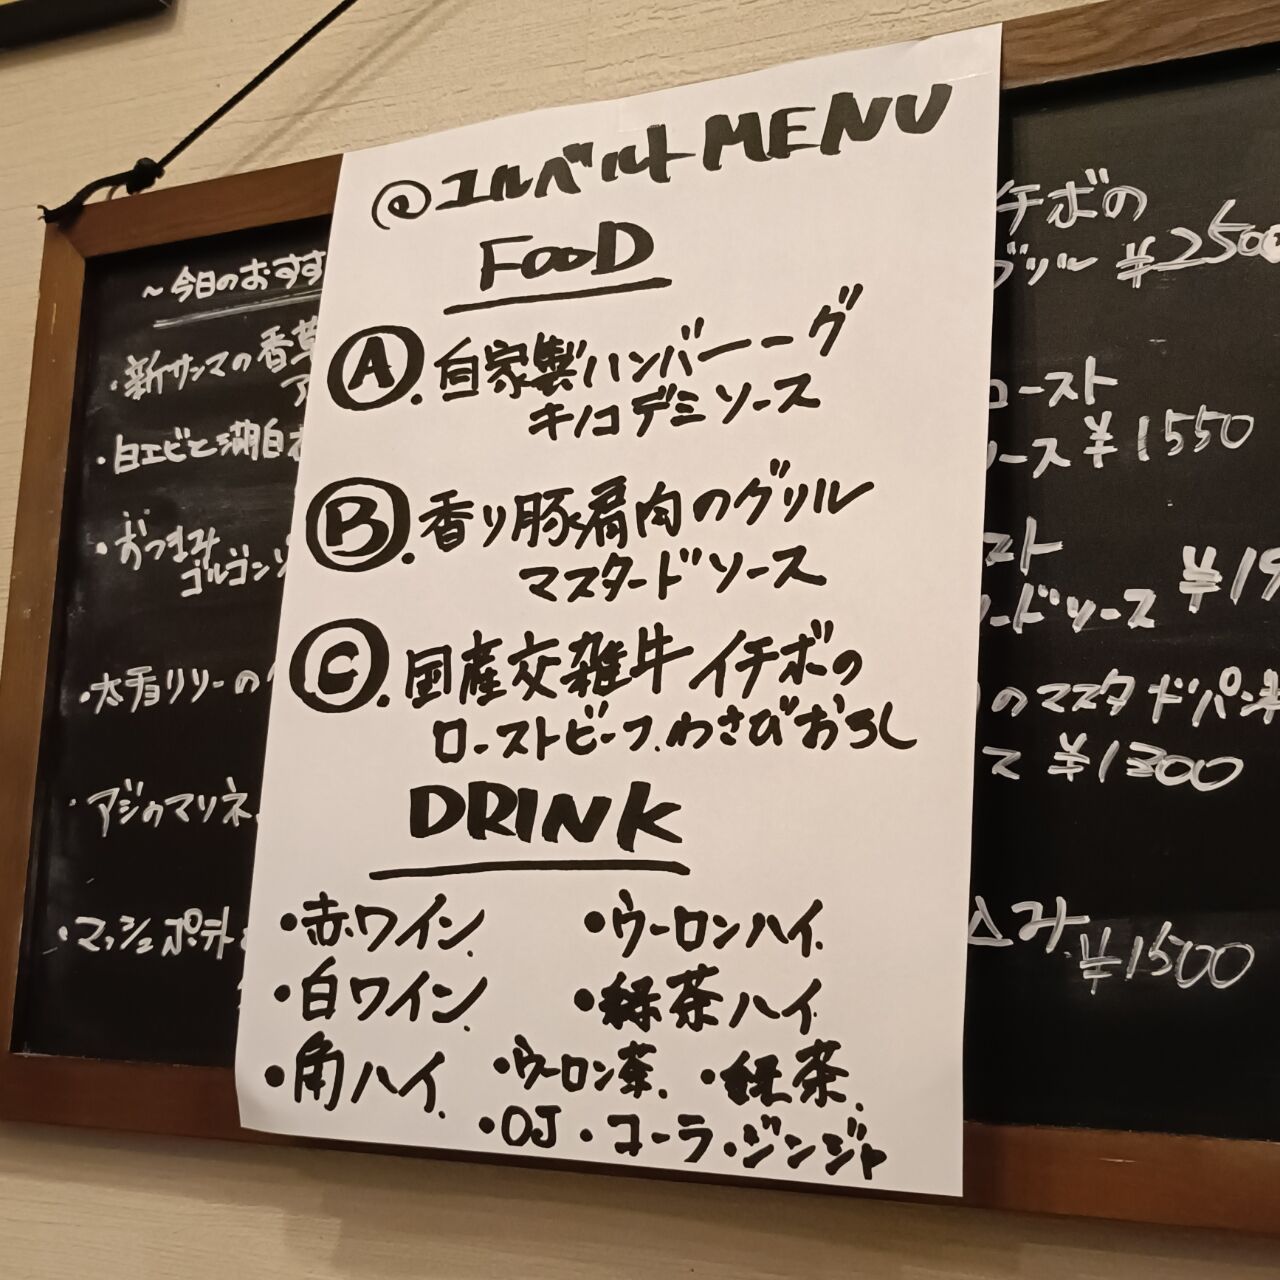 @ユルベルトMENU
FOOD
Ⓐ.自家製ハンバーーグ
キノコデミソース
Ⓑ.香り豚肩肉のグリル
マスタードソース
Ⓒ.国産交雑牛イチボの
ローストビーフ.わさびおろし
DRINK
・赤ワイン.
・白ワイン.
・角ハイ.
・ウーロンハイ.
・緑茶ハイ.
・ウーロン茶. ・緑茶.
・OJ・コーラ・ジンジャ
~今日のおすす
・新サンマの香草
ア
・白エビと湖白
・おつまみ
ゴルゴンゾ
・太刀リソーの
・アジのマリネ.
・マッシュポテト
イチボの
グリル ¥2500
ロースト
ソース ¥1550
スト
ードソース ¥19
のマスタードパン粉
ス ¥1300
み. ¥1500